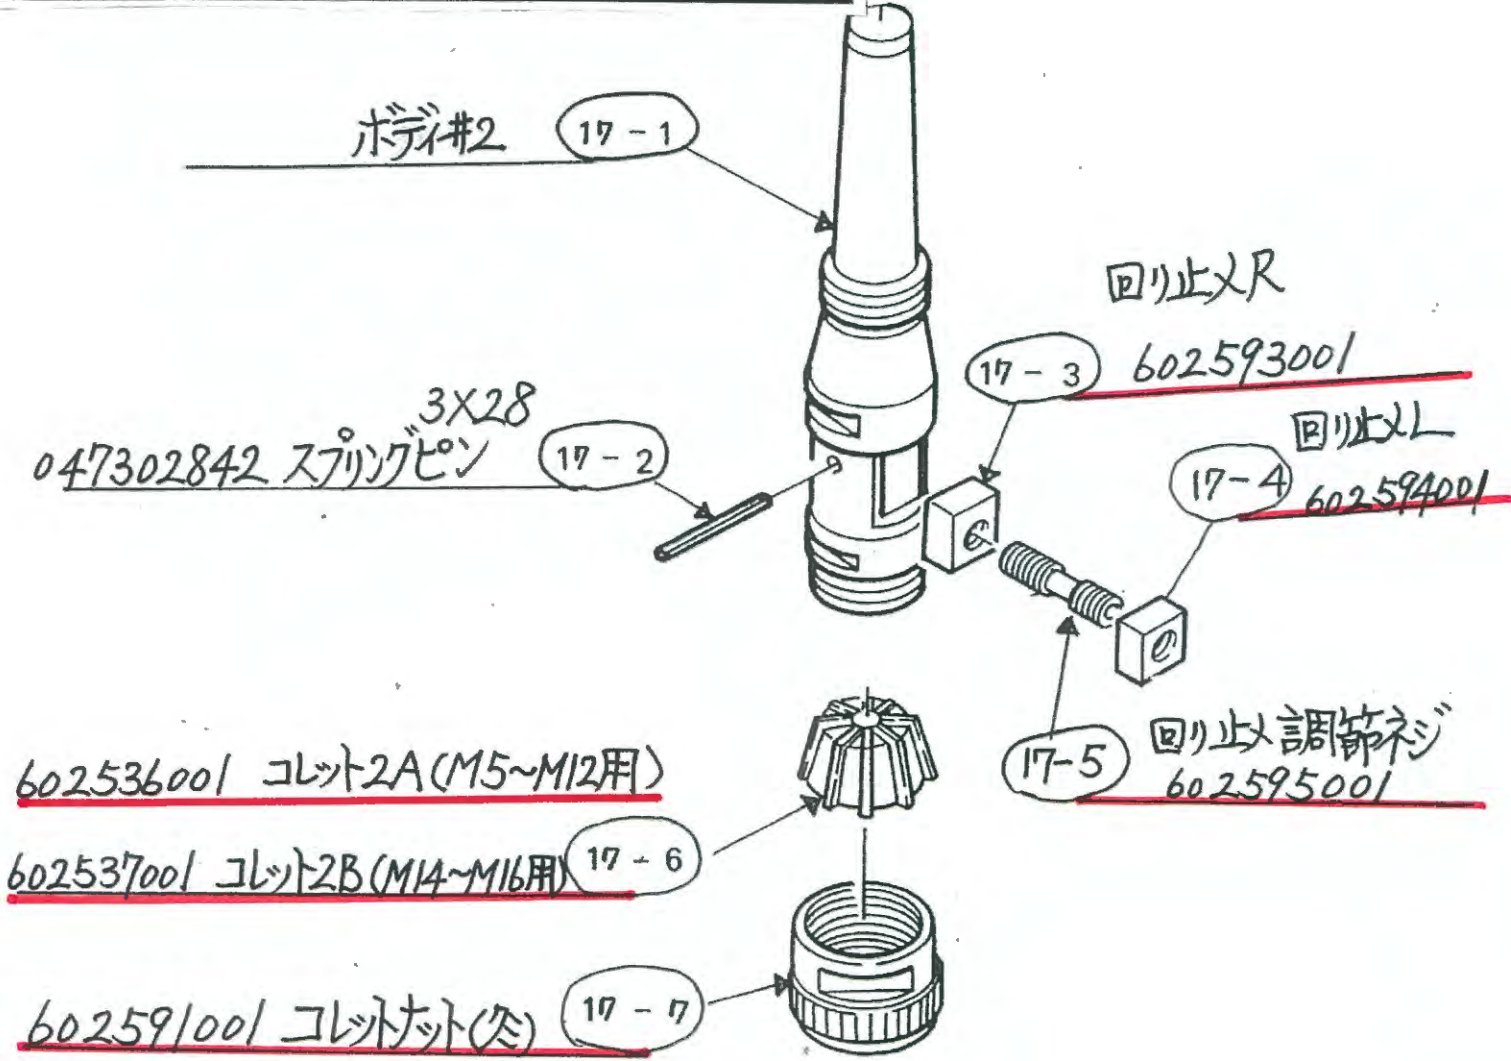 ボディ#2 17-1
回り止メR
17-3 602593001
3×28
047302842 スプリングピン 17-2
回り止メL
17-4 602594001
回り止メ調節ネジ
17-5 602595001
602536001 コレット2A(M5~M12用)
602537001 コレット2B(M14~M16用) 17-6
602591001 コレットナット(クミ) 17-7